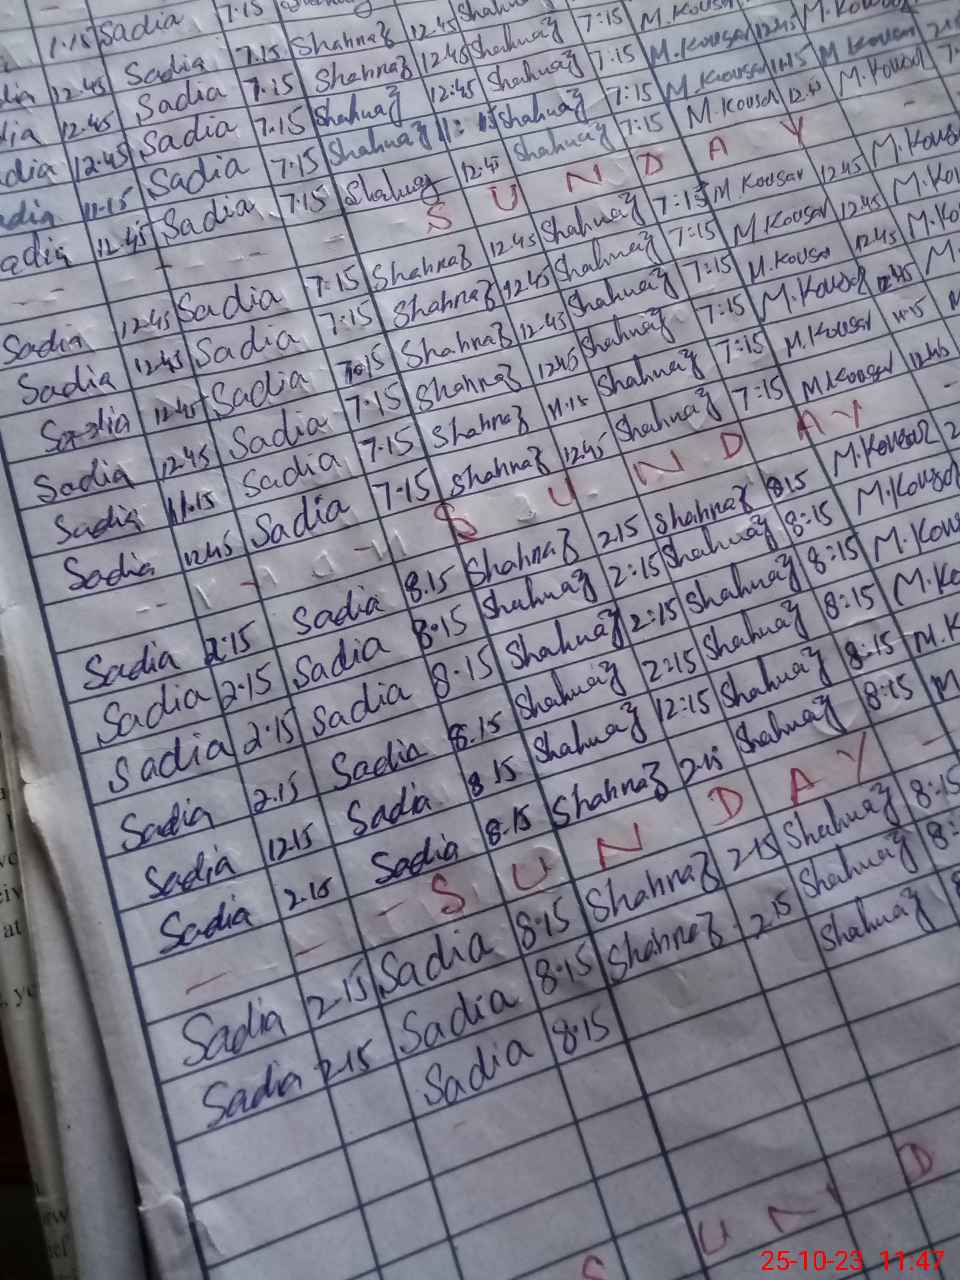 1.15 Sadia 7.15 Shahnaz 12.45 Shahnaz 7:15 M.Kousar 12.45 M.Kousar
12.45 Sadia 7.15 Shahnaz 12.45 Shahnaz 7:15 M.Kousar 11.15 M.Kousar
12.45 Sadia 7.15 Shahnaz 12:45 Shahnaz 7:15 M.Kousar 12.45 M.Kousar
12.45 Sadia 7.15 Shahnaz 11:15 Shahnaz 7:15 M.Kousar
11.15 Sadia 7:15 Shahnaz 12.45 Shahnaz 7:15
12.45 Sadia 7:15 Shahnaz
S U N D A Y
Sadia 12.45 Sadia 7:15 Shahnaz 12.45 Shahnaz 7:15 M.Kousar 12.45
Sadia 12.45 Sadia 7:15 Shahnaz 12.45 Shahnaz 7:15 M.Kousar 12.45
Sadia 12.45 Sadia 7.15 Shahnaz 12.45 Shahnaz 7:15 M.Kousar 12.45
Sadia 12.45 Sadia 7.15 Shahnaz 12.45 Shahnaz 7:15 M.Kousar 12.45
Sadia 11.15 Sadia 7.15 Shahnaz 11.15 Shahnaz 7:15 M.Kousar 11.15
Sadia 12.45 Sadia 7.15 Shahnaz 12.45 Shahnaz 7:15 M.Kousar 12.45
S U N D A Y
Sadia 2:15 Sadia 8.15 Shahnaz 2.15 Shahnaz 8.15 M.Kousar
Sadia 2.15 Sadia 8.15 Shahnaz 2:15 Shahnaz 8:15 M.Kousar
Sadia 2.15 Sadia 8.15 Shahnaz 2:15 Shahnaz 8:15
Sadia 2.15 Sadia 8.15 Shahnaz 2:15 Shahnaz 8:15
Sadia 12.15 Sadia 8.15 Shahnaz 12:15 Shahnaz 8:15
Sadia 2.15 Sadia 8.15 Shahnaz 2.15 Shahnaz 8:15
S U N D A Y
Sadia 2.15 Sadia 8.15 Shahnaz 2.15 Shahnaz 8:15
Sadia 2.15 Sadia 8.15 Shahnaz 2.15 Shahnaz
Sadia 8.15 Shahnaz
S U N D
25-10-23 11:47